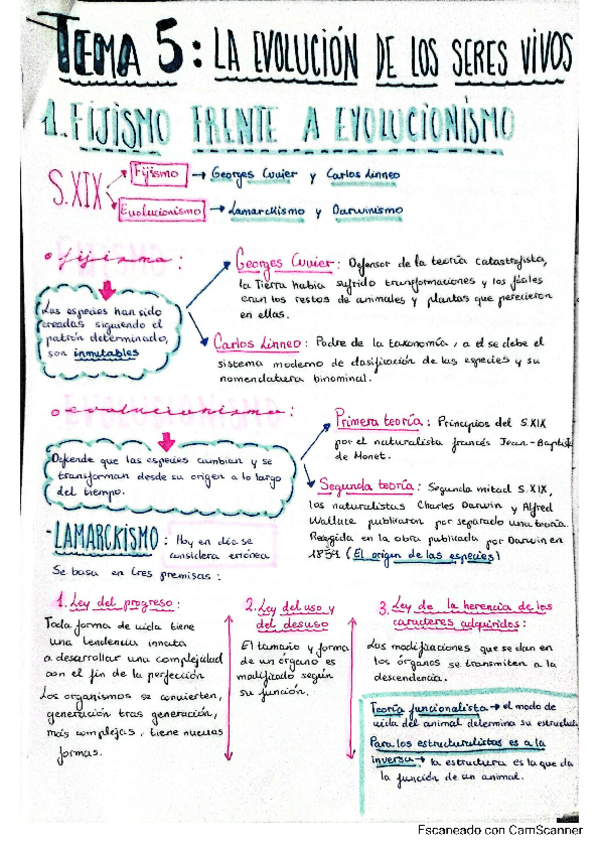 TEMA 5: LA EVOLUCIÓN DE LOS SERES VIVOS
1. FIJISMO FRENTE A EVOLUCIONISMO
S.XIX
Fijismo → Georges Cuvier y Carlos Linneo
Evolucionismo → Lamarckismo y Darwinismo
• fijismo:
Las especies han sido
creadas siguiendo el
patrón determinado,
son inmutables
Georges Cuvier: Defensor de la teoría catastrofista,
la Tierra había sufrido transformaciones y los fósiles
eran los restos de animales y plantas que perecieron
en ellas.
Carlos Linneo: Padre de la taxonomía, a él se debe el
sistema moderno de clasificación de las especies y su
nomenclatura binominal.
• evolucionismo:
Defiende que las especies cambian y se
transforman desde su origen a lo largo
del tiempo.
Primera teoría: Principios del S.XIX
por el naturalista francés Jean-Baptiste
de Monet.
Segunda teoría: Segunda mitad S.XIX,
los naturalistas Charles Darwin y Alfred
Wallace publicaron por separado una teoría.
Recogida en la obra publicada por Darwin en
1859 (El origen de las especies)
-LAMARCKISMO: Hoy en día se
considera errónea
Se basa en tres premisas:
1. Ley del progreso:
Toda forma de vida tiene
una tendencia innata
a desarrollar una complejidad
con el fin de la perfección
Los organismos se convierten,
generación tras generación,
más complejas, tiene nuevas
formas.
2. Ley del uso y
del desuso
El tamaño y forma
de un órgano es
modificado según
su función.
3. Ley de la herencia de los
caracteres adquiridos:
Las modificaciones que se dan en
los órganos se transmiten a la
descendencia.
Teoría funcionalista → el modo de
vida del animal determina su estructura.
Para los estructuralistas es a la
inversa → la estructura es la que da
la función de un animal.
Escaneado con CamScanner